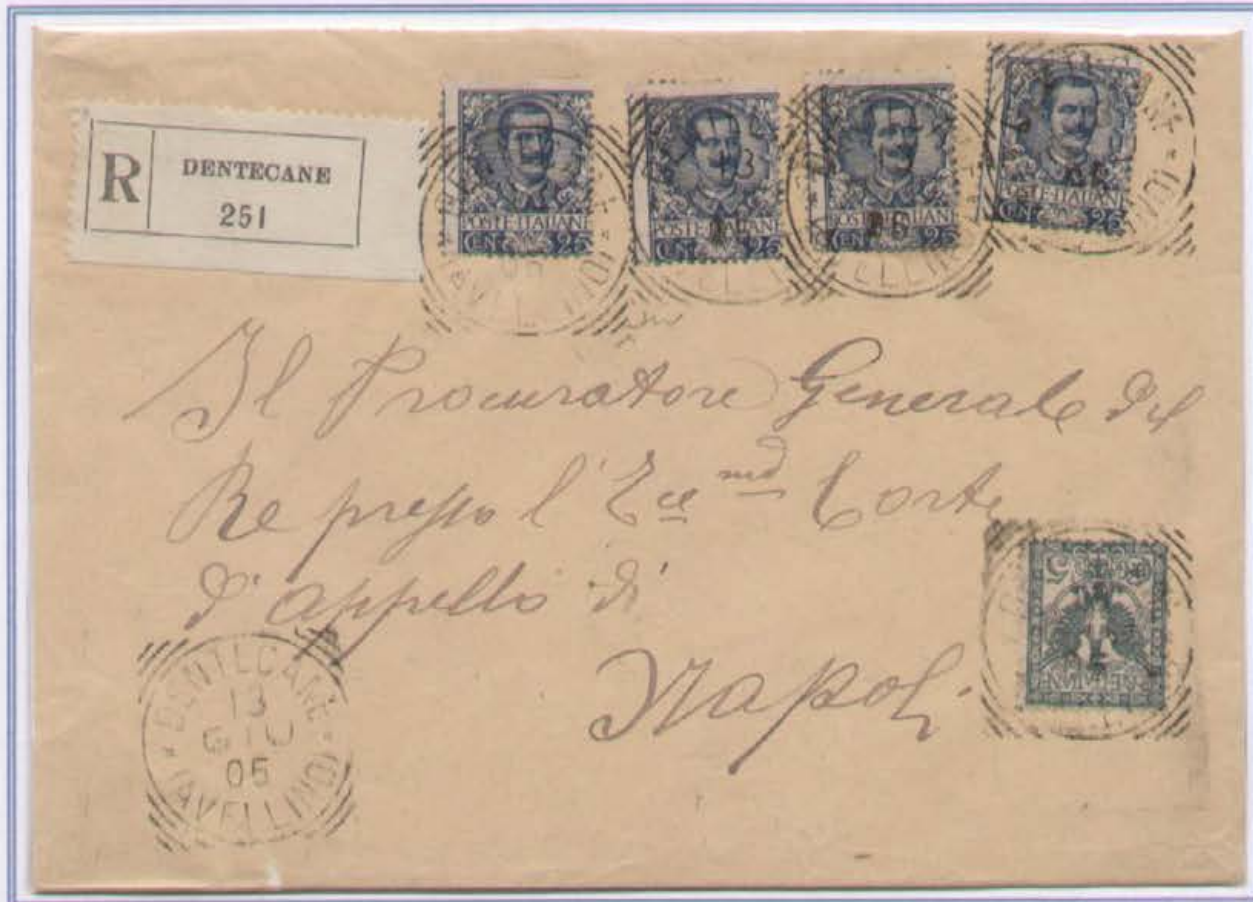 R DENTECANE
251
POSTE ITALIANE
CENT. 25
POSTE ITALIANE
CENT. 25
POSTE ITALIANE
CENT. 25
POSTE ITALIANE
CENT. 25
Il Procuratore Generale del
Re presso l'Ecc.ma Corte
d'appello di
Napoli
5
DENTECANE
13
GIU
05
(AVELLINO)